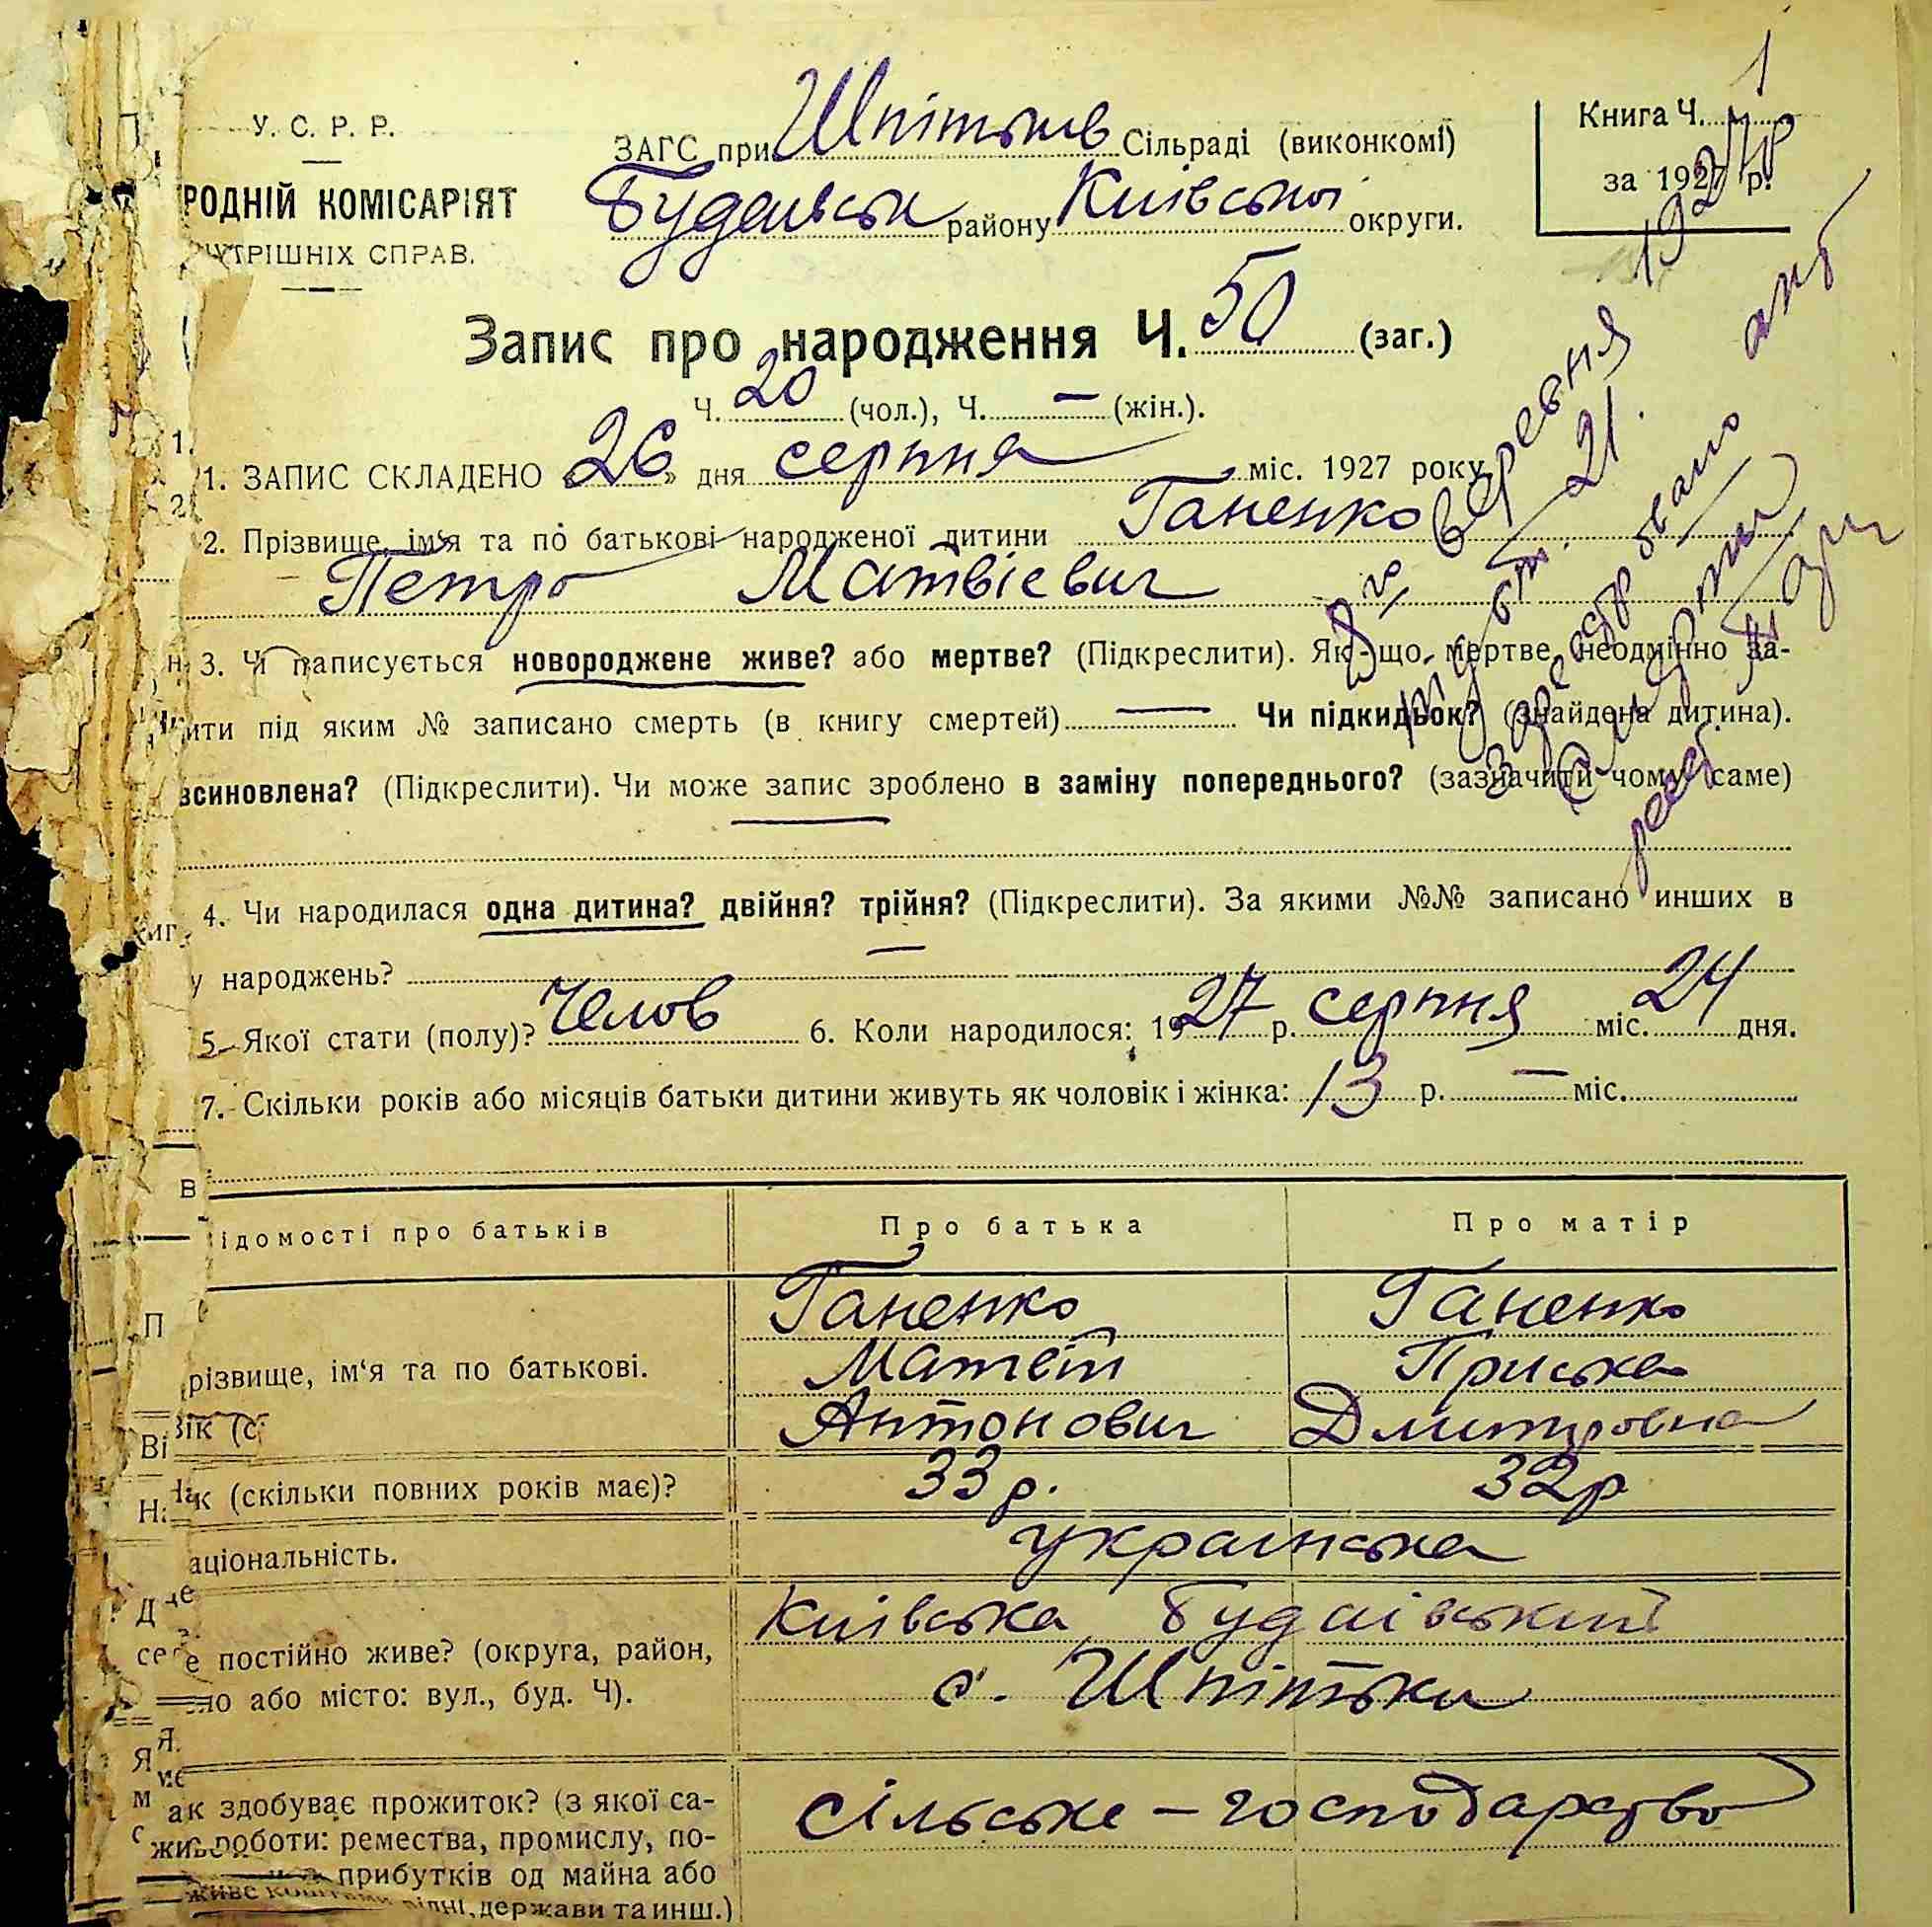 У. С. Р. Р.
РОДНІЙ КОМІСАРІЯТ
УТРІШНІХ СПРАВ.
ЗАГС при Шпітьків Сільраді (виконкомі)
Будаївськ району Київської округи.
Книга Ч. 1
за 1927 р.
Запис про народження Ч. 50 (заг.)
Ч. 20 (чол.), Ч. — (жін.).
1. ЗАПИС СКЛАДЕНО 26 » дня серпня міс. 1927 року
2. Прізвище, ім'я та по батькові народженої дитини Ганенко
Петро Матвієвич
3. Чи записується новороджене живе? або мертве? (Підкреслити). Як-що мертве, неодмінно за-
ити під яким № записано смерть (в книгу смертей) — Чи підкидьок? (знайдена дитина).
всиновлена? (Підкреслити). Чи може запис зроблено в заміну попереднього? (зазначити чому саме)
4. Чи народилася одна дитина? двійня? трійня? (Підкреслити). За якими №№ записано инших в
у народжень?
5. Якої стати (полу)? Челов 6. Коли народилося: 1927 р. серпня міс. 24 дня.
7. Скільки років або місяців батьки дитини живуть як чоловік і жінка: 13 р. — міс.
8 вересня 1927 р
ст. 21.
ідомості про батьків Про батька Про матір
Ганенко Ганенко
різвище, ім'я та по батькові. Матвій Приська
Антонович Дмитровна
ік (скільки повних років має)? 33 р. 32 р
аціональність. українська
Київська Будаївський
е постійно живе? (округа, район,
с. Шпітьки
ло або місто: вул., буд. Ч).
ак здобуває прожиток? (з якої са- сільське – господарство
роботи: ремества, промислу, по-
прибутків од майна або
живе коштами рідні, держави та инш.)